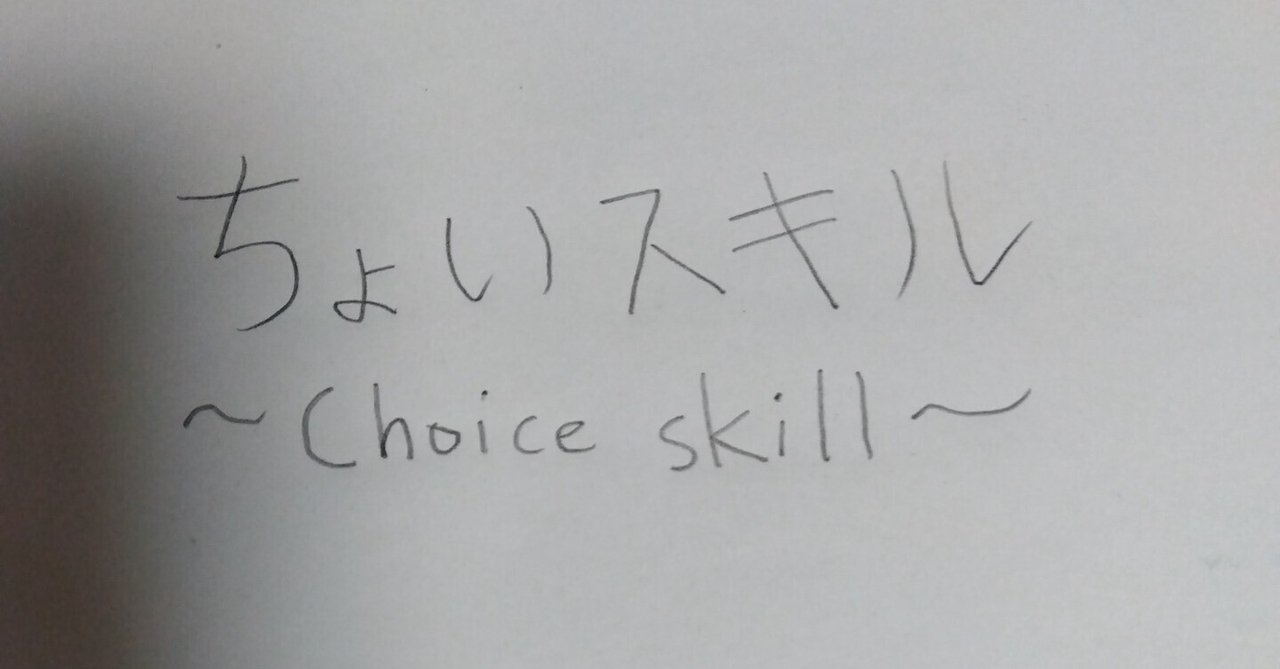 ちょいスキル
～Choice skill～